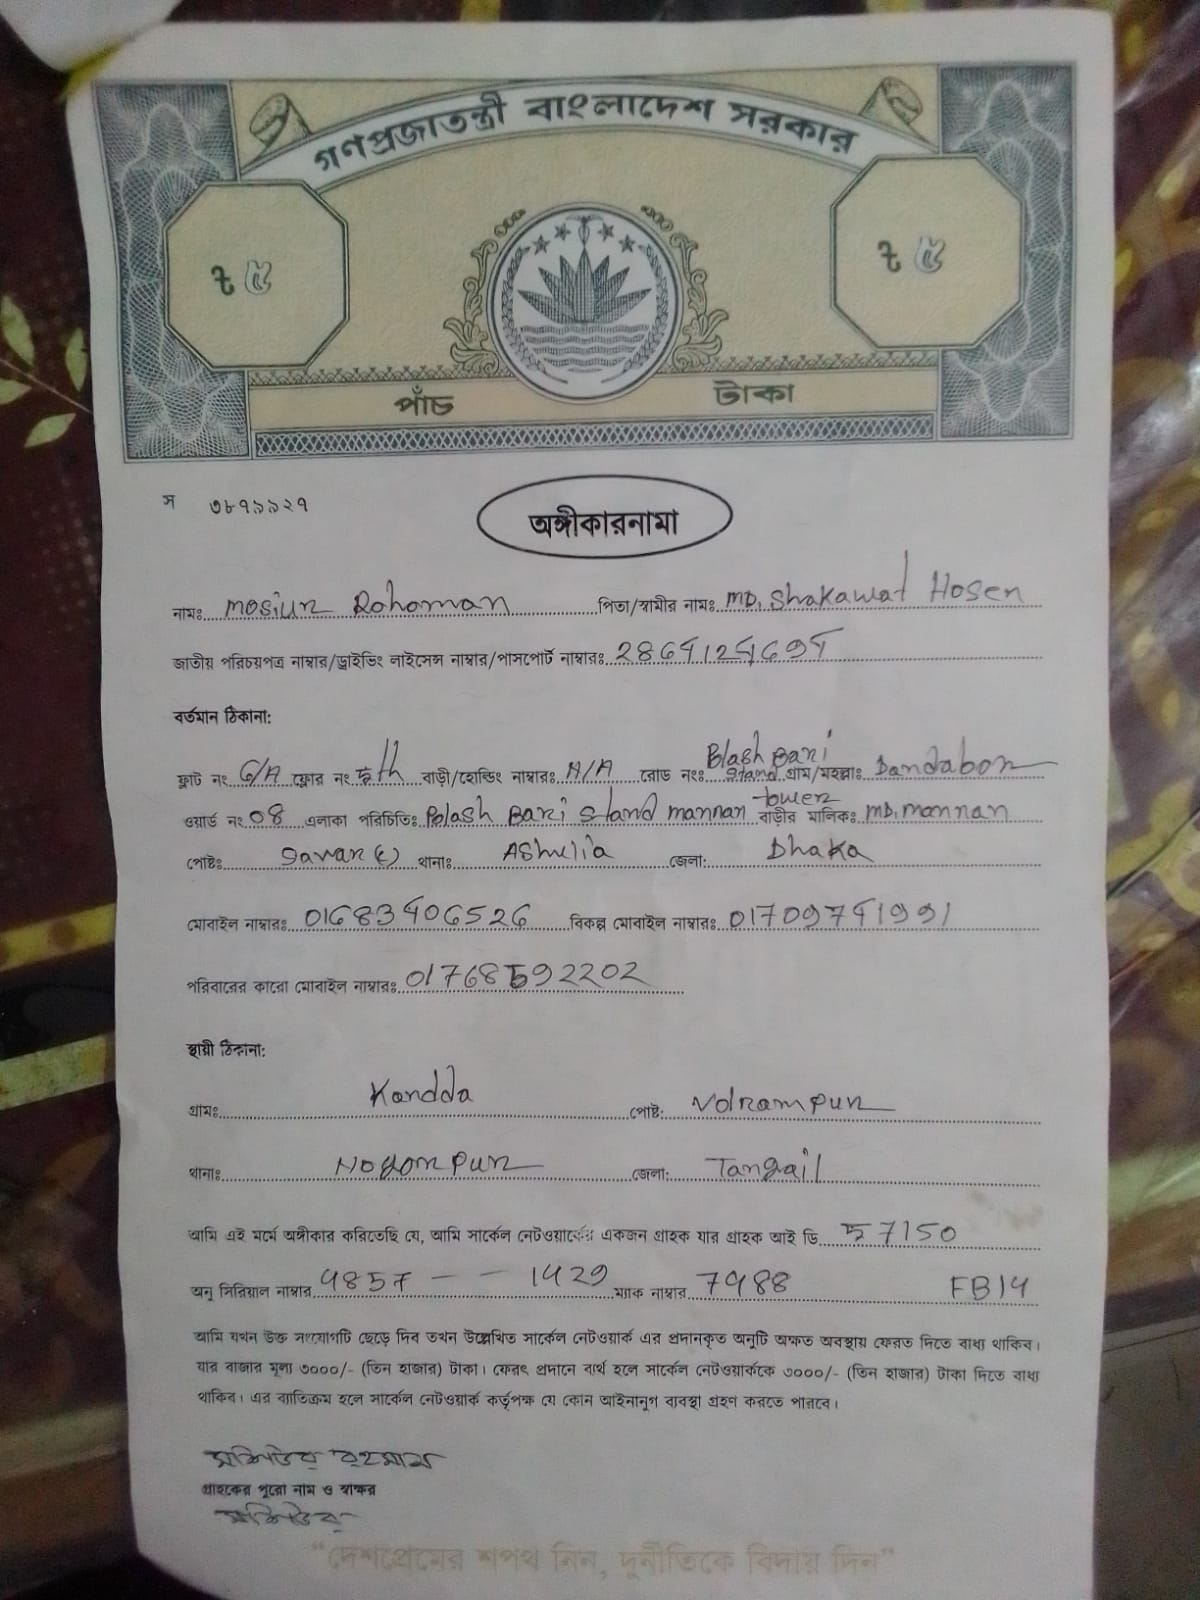 গণপ্রজাতন্ত্রী বাংলাদেশ সরকার
৳ ৫ ৳ ৫
পাঁচ টাকা
স ৩৮৭৯৯২৭
অঙ্গীকারনামা
নামঃ Mosiur Rohoman পিতা/স্বামীর নামঃ MD. Shakawat Hosen
জাতীয় পরিচয়পত্র নাম্বার/ড্রাইভিং লাইসেন্স নাম্বার/পাসপোর্ট নাম্বারঃ
বর্তমান ঠিকানা:
ফ্লাট নং G/A ফ্লোর নং 5th বাড়ী/হোল্ডিং নাম্বারঃ A/A রোড নংঃ Blash Bari Stand গ্রাম/মহল্লাঃ Dandabor
ওয়ার্ড নং 08 এলাকা পরিচিতিঃ Polash Bari Stand mannan tower বাড়ীর মালিকঃ MD. mannan
পোষ্টঃ Savar থানাঃ Ashulia জেলা: Dhaka
মোবাইল নাম্বারঃ 01683406526 বিকল্প মোবাইল নাম্বারঃ 01709741991
পরিবারের কারো মোবাইল নাম্বারঃ 01768592202
স্থায়ী ঠিকানা:
গ্রামঃ Kandda পোষ্ট: Vdrampur
থানাঃ Nogorpur জেলা: Tangail
আমি এই মর্মে অঙ্গীকার করিতেছি যে, আমি সার্কেল নেটওয়ার্কের একজন গ্রাহক যার গ্রাহক আই ডি 57150
অনু সিরিয়াল নাম্বার 4857 - - 1429 ম্যাক নাম্বার 7488 FB14
আমি যখন উক্ত সংযোগটি ছেড়ে দিব তখন উল্লেখিত সার্কেল নেটওয়ার্ক এর প্রদানকৃত অনুটি অক্ষত অবস্থায় ফেরত দিতে বাধ্য থাকিব।
যার বাজার মূল্য ৩০০০/- (তিন হাজার) টাকা। ফেরৎ প্রদানে ব্যর্থ হলে সার্কেল নেটওয়ার্ককে ৩০০০/- (তিন হাজার) টাকা দিতে বাধ্য
থাকিব। এর ব্যাতিক্রম হলে সার্কেল নেটওয়ার্ক কর্তৃপক্ষ যে কোন আইনানুগ ব্যবস্থা গ্রহণ করতে পারবে।
মশিউর রহমান
গ্রাহকের পুরো নাম ও স্বাক্ষর
মশিউর
“দেশপ্রেমের শপথ নিন, দুর্নীতিকে বিদায় দিন”